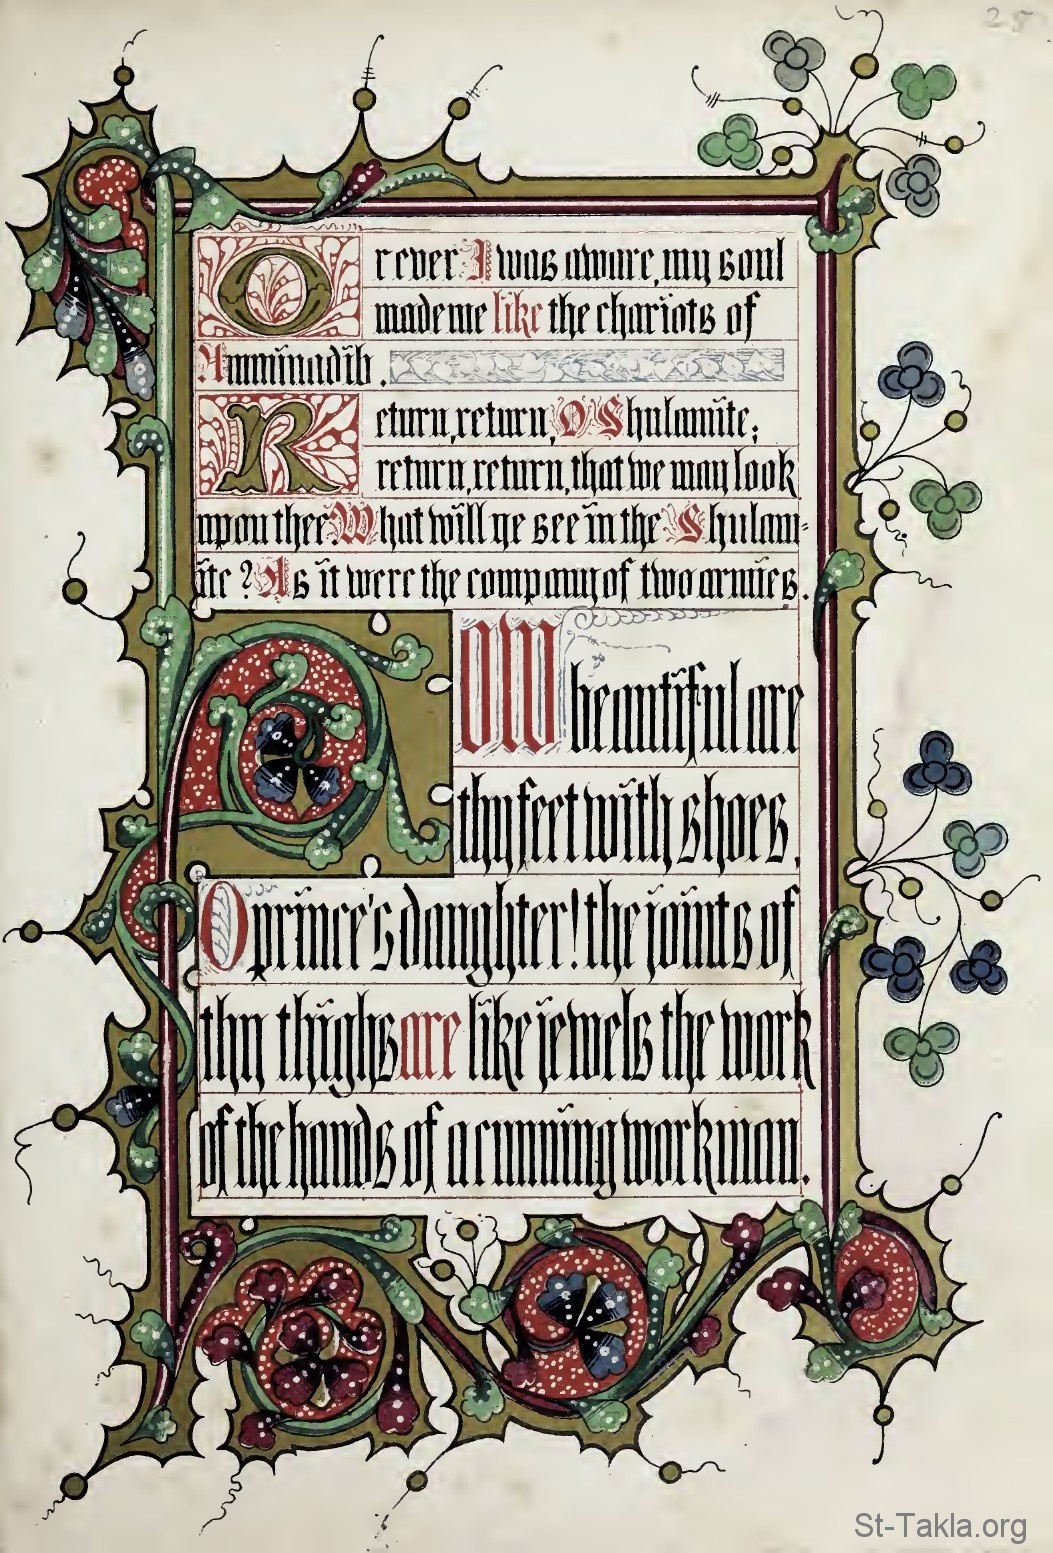 25
Or ever I was aware, my soul
made me like the chariots of
Amminadib.
Return, return, O Shulamite;
return, return, that we may look
upon thee. What will ye see in the Shulam-
ite? As it were the company of two armies.
HOW
beautiful are
thy feet with shoes,
O prince's daughter! the joints of
thy thighs are like jewels the work
of the hands of a cunning workman.
St-Takla.org